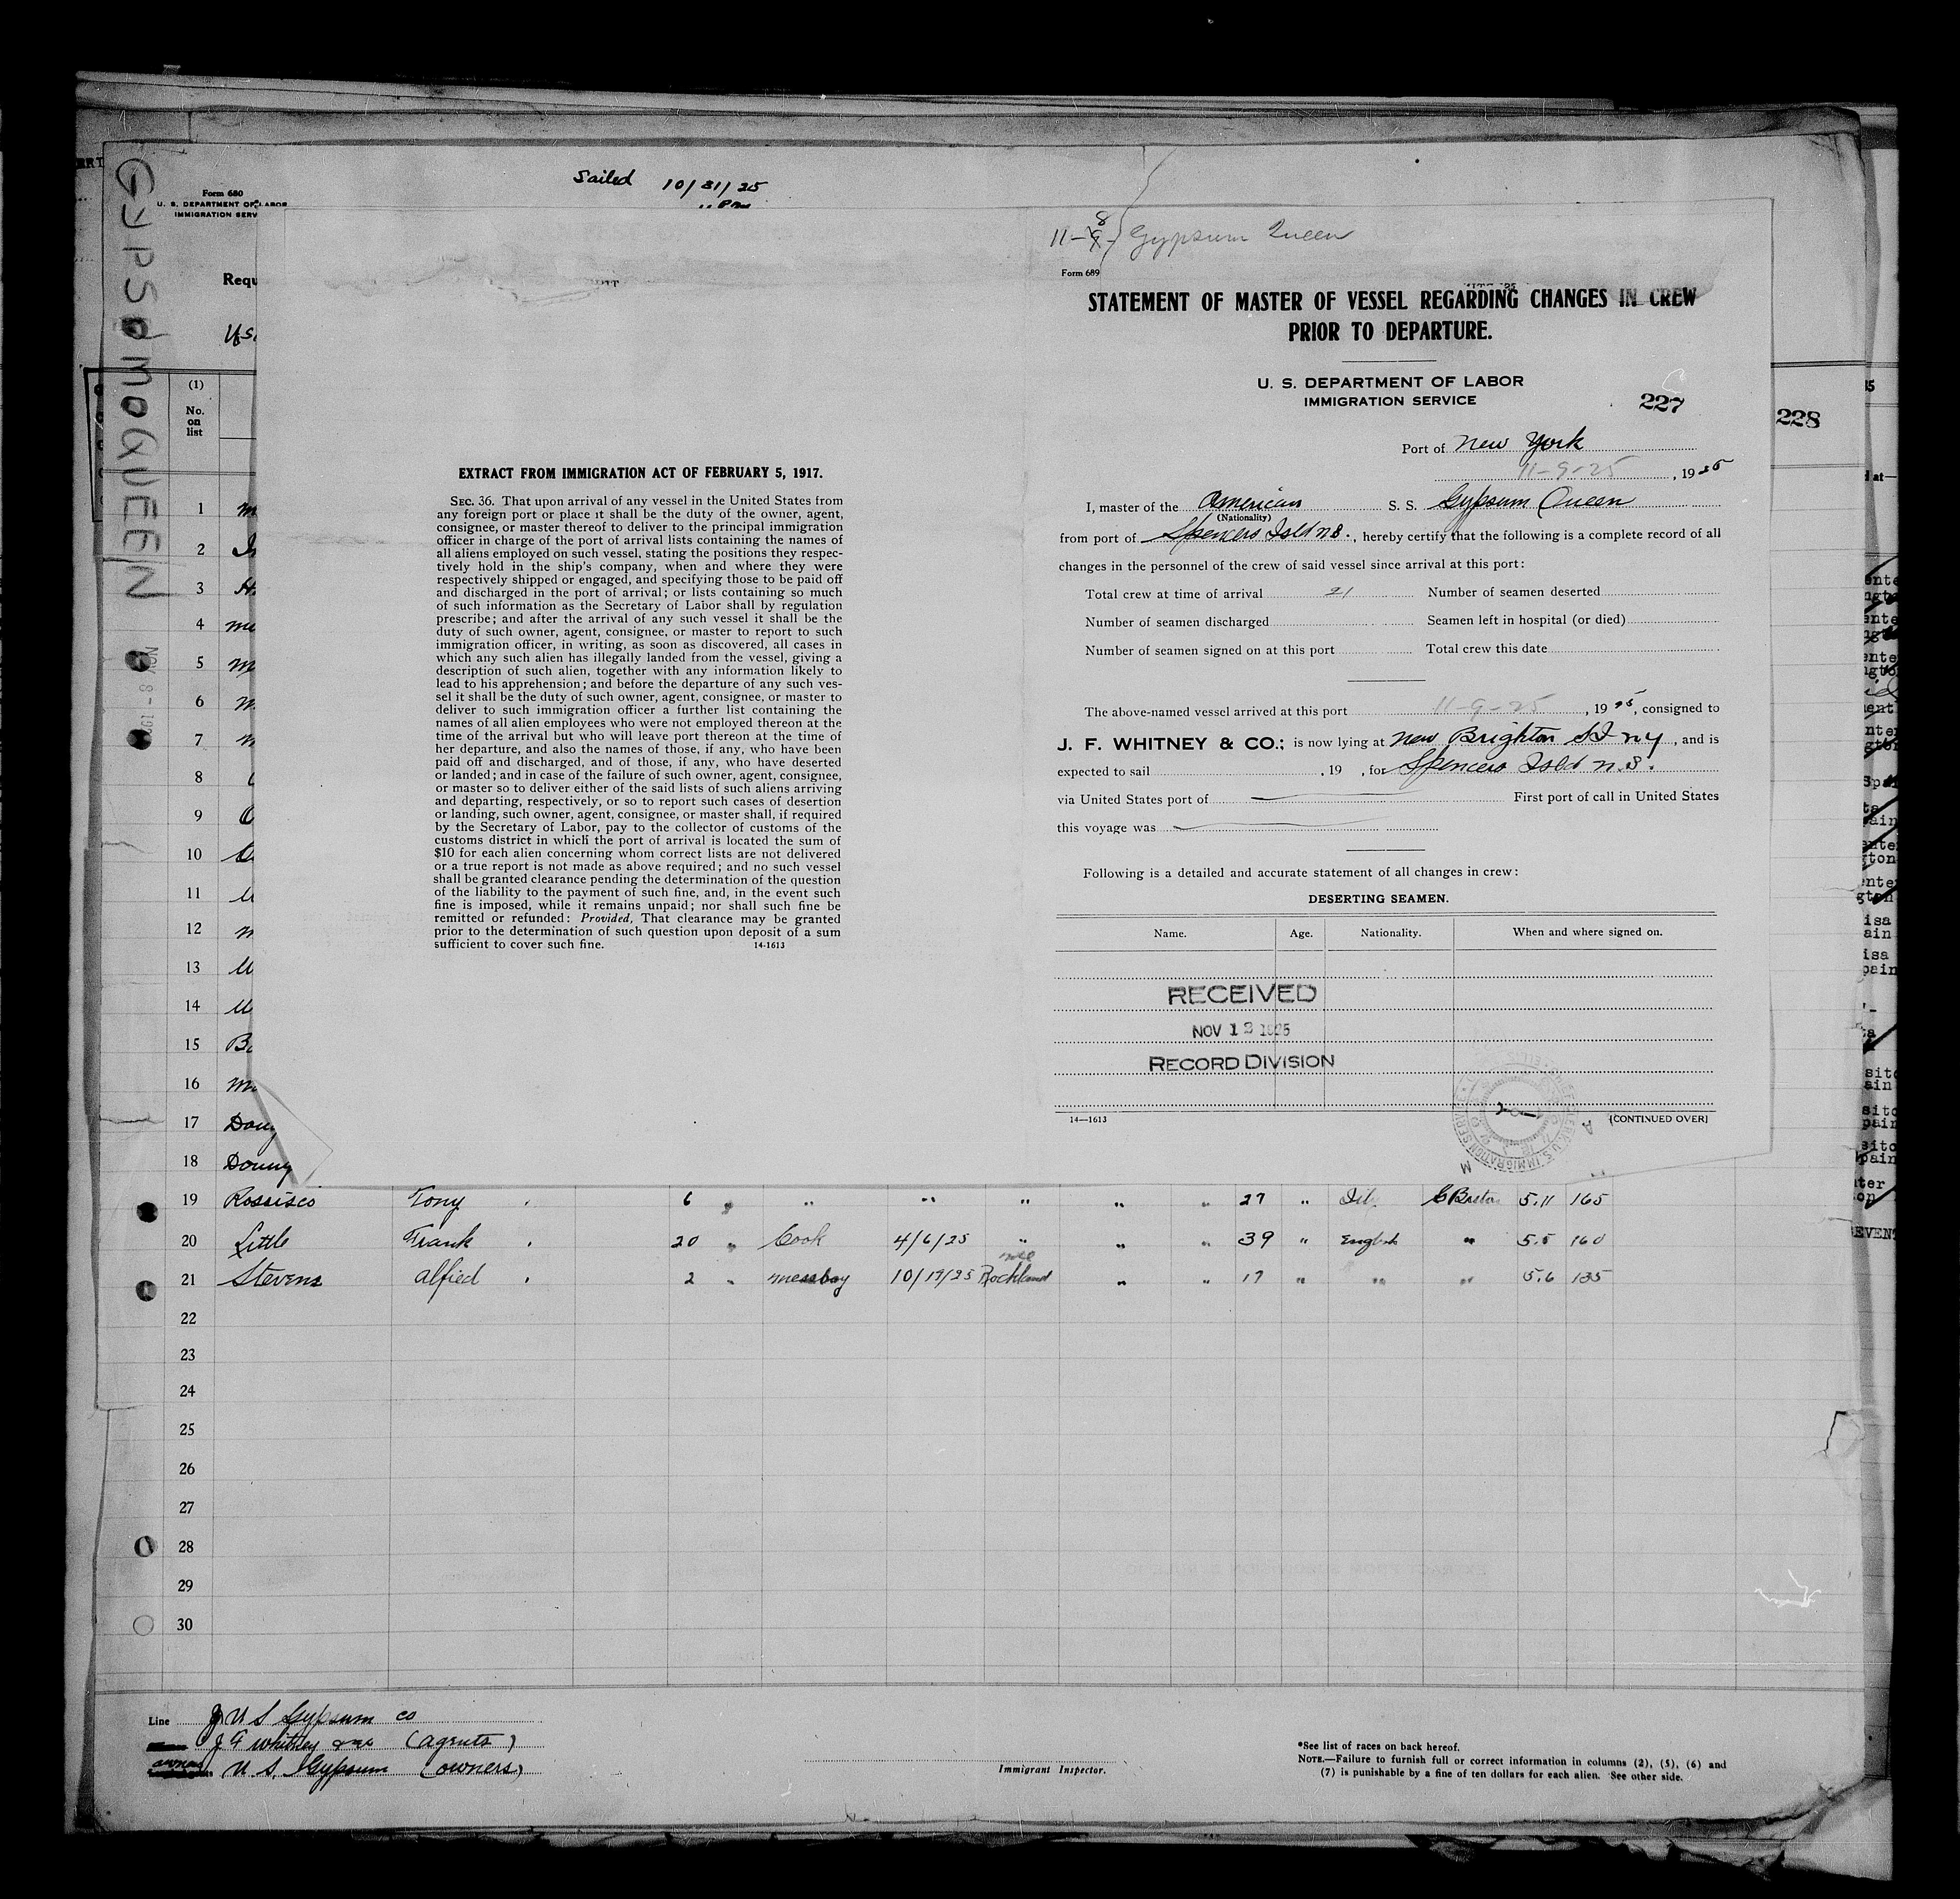 Sailed 10/31/25
Form 680
U. S. DEPARTMENT OF LABOR
IMMIGRATION SERV
GYPSUM QUEEN
Requ
(1)
No.
on
list
1
2
3
4
5
6
7
8
9
10
11
12
13
14
15
16
17 Doug
18 Donny
EXTRACT FROM IMMIGRATION ACT OF FEBRUARY 5, 1917.
SEC. 36. That upon arrival of any vessel in the United States from
any foreign port or place it shall be the duty of the owner, agent,
consignee, or master thereof to deliver to the principal immigration
officer in charge of the port of arrival lists containing the names of
all aliens employed on such vessel, stating the positions they respec-
tively hold in the ship's company, when and where they were
respectively shipped or engaged, and specifying those to be paid off
and discharged in the port of arrival; or lists containing so much
of such information as the Secretary of Labor shall by regulation
prescribe; and after the arrival of any such vessel it shall be the
duty of such owner, agent, consignee, or master to report to such
immigration officer, in writing, as soon as discovered, all cases in
which any such alien has illegally landed from the vessel, giving a
description of such alien, together with any information likely to
lead to his apprehension; and before the departure of any such ves-
sel it shall be the duty of such owner, agent, consignee, or master to
deliver to such immigration officer a further list containing the
names of all alien employees who were not employed thereon at the
time of the arrival but who will leave port thereon at the time of
her departure, and also the names of those, if any, who have been
paid off and discharged, and of those, if any, who have deserted
or landed; and in case of the failure of such owner, agent, consignee,
or master so to deliver either of the said lists of such aliens arriving
and departing, respectively, or so to report such cases of desertion
or landing, such owner, agent, consignee, or master shall, if required
by the Secretary of Labor, pay to the collector of customs of the
customs district in which the port of arrival is located the sum of
$10 for each alien concerning whom correct lists are not delivered
or a true report is not made as above required; and no such vessel
shall be granted clearance pending the determination of the question
of the liability to the payment of such fine, and, in the event such
fine is imposed, while it remains unpaid; nor shall such fine be
remitted or refunded: Provided, That clearance may be granted
prior to the determination of such question upon deposit of a sum
sufficient to cover such fine. 14-1613
11-8 Gypsum Queen
Form 689
STATEMENT OF MASTER OF VESSEL REGARDING CHANGES IN CREW
PRIOR TO DEPARTURE.
U. S. DEPARTMENT OF LABOR
IMMIGRATION SERVICE
227
228
Port of New York
11-9-25, 1925
I, master of the American S. S. Gypsum Queen
(Nationality)
from port of Spencers Isld N.S., hereby certify that the following is a complete record of all
changes in the personnel of the crew of said vessel since arrival at this port:
Total crew at time of arrival 21 Number of seamen deserted
Number of seamen discharged Seamen left in hospital (or died)
Number of seamen signed on at this port Total crew this date
The above-named vessel arrived at this port 11-9-25, 1925, consigned to
J. F. WHITNEY & CO.; is now lying at New Brighton S I N Y, and is
expected to sail , 19 , for Spencers Isld N.S.
via United States port of First port of call in United States
this voyage was
Following is a detailed and accurate statement of all changes in crew:
DESERTING SEAMEN.
Name. Age. Nationality. When and where signed on.
RECEIVED
NOV 12 1925
RECORD DIVISION
14—1613 [CONTINUED OVER]
19 Rossisco Tony 6 " " " " " " 27 " Itl C Breton 5.11 165
20 Little Frank 20 " Cook 4/6/25 " " " 39 " English " 5.5 160
21 Stevens Alfied 2 " messboy 10/19/25 Rockland " " 17 " " " 5.6 135
22
23
24
25
26
27
28
29
30
Line U S Gypsum Co
J F Whitney & Co (agents)
owners U. S. Gypsum (owners)
Immigrant Inspector.
*See list of races on back hereof.
NOTE.—Failure to furnish full or correct information in columns (2), (5), (6) and
(7) is punishable by a fine of ten dollars for each alien. See other side.